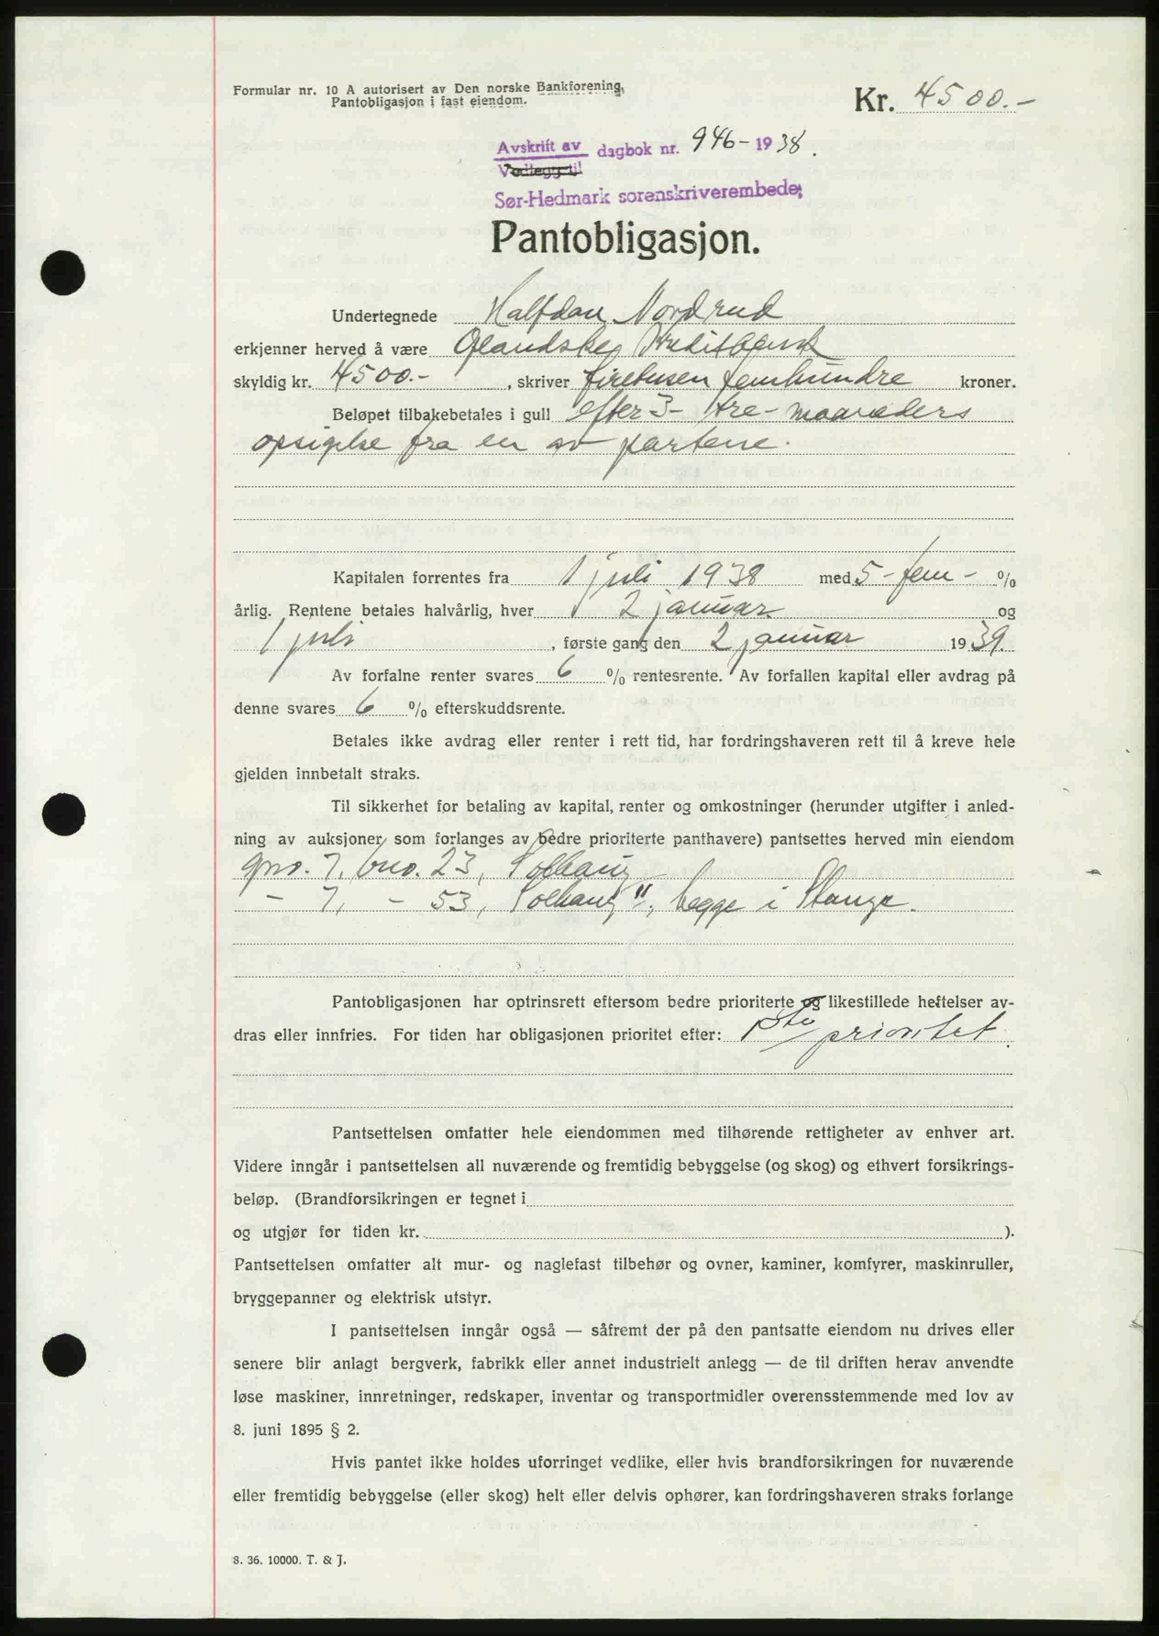 Formular nr. 10 A autorisert av Den norske Bankforening.
Pantobligasjon i fast eiendom.
Kr. 4500.-
Avskrift av dagbok nr. 946-1938.
Vedlegg til
Sør-Hedmark sorenskriverembede;
Pantobligasjon.
Undertegnede Halfdan Nordrud
erkjenner herved å være Oplandske Kreditbank
skyldig kr. 4500.- , skriver firetusen femhundre kroner.
Beløpet tilbakebetales i gull efter 3- tre- maaneders
opsigelse fra en av partene.
Kapitalen forrentes fra 1 juli 1938 med 5-fem- %
årlig. Rentene betales halvårlig, hver 2 januar og
1 juli , første gang den 2 januar 1939.
Av forfalne renter svares 6 % rentesrente. Av forfallen kapital eller avdrag på
denne svares 6 % efterskuddsrente.
Betales ikke avdrag eller renter i rett tid, har fordringshaveren rett til å kreve hele
gjelden innbetalt straks.
Til sikkerhet for betaling av kapital, renter og omkostninger (herunder utgifter i anled-
ning av auksjoner som forlanges av bedre prioriterte panthavere) pantsettes herved min eiendom
gno. 7, bno. 23, Solhaug
- 7, - 53, Solhaug", begge i Stange.
Pantobligasjonen har optrinsrett eftersom bedre prioriterte og likestillede heftelser av-
dras eller innfries. For tiden har obligasjonen prioritet efter: 1ste prioritet.
Pantsettelsen omfatter hele eiendommen med tilhørende rettigheter av enhver art.
Videre inngår i pantsettelsen all nuværende og fremtidig bebyggelse (og skog) og ethvert forsikrings-
beløp. (Brandforsikringen er tegnet i
og utgjør for tiden kr. ).
Pantsettelsen omfatter alt mur- og naglefast tilbehør og ovner, kaminer, komfyrer, maskinruller,
bryggepanner og elektrisk utstyr.
I pantsettelsen inngår også — såfremt der på den pantsatte eiendom nu drives eller
senere blir anlagt bergverk, fabrikk eller annet industrielt anlegg — de til driften herav anvendte
løse maskiner, innretninger, redskaper, inventar og transportmidler overensstemmende med lov av
8. juni 1895 § 2.
Hvis pantet ikke holdes uforringet vedlike, eller hvis brandforsikringen for nuværende
eller fremtidig bebyggelse (eller skog) helt eller delvis ophører, kan fordringshaveren straks forlange
8. 36. 10000. T. & J.